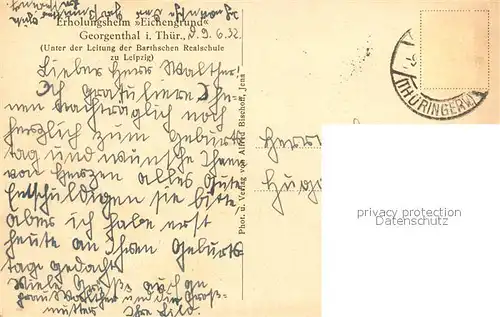 Erholungsheim »Eichengrund«
Georgenthal i. Thür., d. 9. 6. 32.
(Unter der Leitung der Barthschen Realschule
zu Leipzig)
Lieber Herr Walther!
Ich gratuliere Ih-
nen nachträglich noch
herzlich zum Geburts
tag und wünsche Ihnen
von Herzen alles Gute
Entschuldigen sie bitte
aber ich habe erst
heute an Ihren Geburts
tage gedacht
Viele Grüße auch an
Frau Walther und die Groß-
mutter Ihre
Phot. u. Verlag von Alfred Bischoff, Jena
(THÜRINGERW.
Herrn
Hugo
privacy protection
Datenschutz